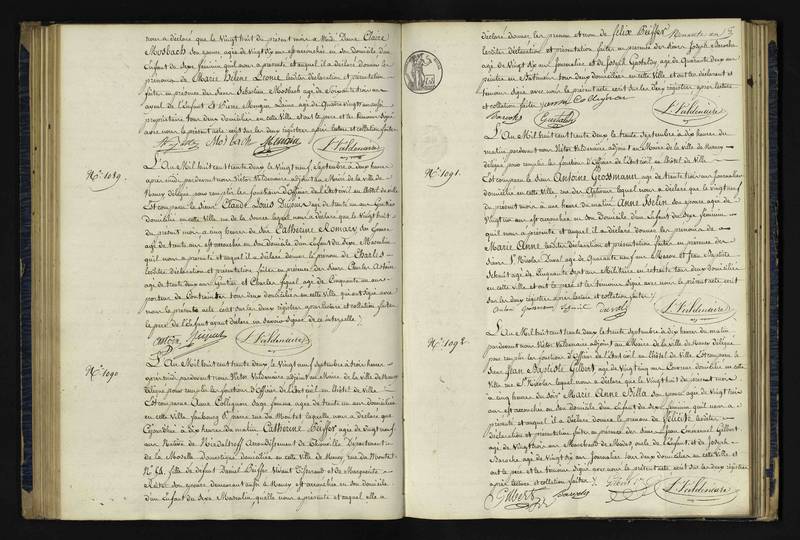 nous a déclaré que le Vingt huit du présent mois à Midi Dame Claire
Mosbach son épouse agée de Vingt six ans est accouchée en son Domicile d'un
Enfant du Sexe féminin qu'il nous a présenté et auquel il a déclaré donner les
prénoms de Marie Hélène Léonie lesdites déclaration et présentation
faites en présence des Sieurs Sébastien Mosbach agé de Soixante trois ans
ayeul de l'Enfant et Pierre Mengin agé de Quarante ans
propriétaires tous deux Domiciliés en cette Ville et ont le père et les témoins Signé
avec nous le présent acte écrit sur les deux régistres après lecture et collation faites
Mosbach Mengin L. Valdenaire
N.° 1089.
L'An Mil huit cent trente deux le Vingt neuf Septembre à deux heures
après midi pardevant nous Victor Valdenaire adjoint au Maire de la ville de
Nancy délégué pour remplir les fonctions d'Officier de l'Etat civil en l'hôtel de ville
Est comparu le Sieur Claude Louis agé de trente un ans
Domicilié en cette Ville rue de la lequel nous a déclaré que le Vingt huit
du présent mois à cinq heures du Soir Catherine Romary son Epouse
agée de trente ans est accouchée en son Domicile d'un Enfant du Sexe Masculin
qu'il nous a présenté et auquel il a déclaré donner le prénom de Charles
lesdites déclaration et présentation faites en présence des Sieurs Charles Antoine
agé de trente deux ans et Charles agé de Cinquante ans
tous deux domiciliés en cette Ville qui ont Signé avec
nous le présent acte écrit sur les deux régistres après lecture et collation faites
le père de l'Enfant ayant déclaré ne savoir Signer de ce interpellé
L. Valdenaire
N.° 1090
L'An Mil huit cent trente deux le Vingt neuf Septembre à trois heures
après midi pardevant nous Victor Valdenaire adjoint au Maire de la ville de Nancy
délégué pour remplir les fonctions d'Officier de l'Etat civil en l'hôtel de Ville
Est comparue Anne Collignon Sage femme agée de trente un ans Domiciliée
en cette Ville faubourg St. pierre rue du Montet laquelle nous a déclaré que
aujourd'hui à dix heures du matin Catherine Peiffer agée de Vingt neuf
ans Native de Arrondissement de Thionville Département
de la Moselle Domestique domiciliée en cette Ville de Nancy rue du Montet
N° 54. fille de défunt Daniel Peiffer vivant Tisserand et de Marguerite
son épouse demeurant aussi à Nancy est accouchée en son domicile
d'un Enfant du Sexe Masculin, qu'elle nous a présenté et auquel elle a
déclaré donner les prenom et nom de félix Peiffer
lesdites déclaration et présentation faites en présence des Sieurs Joseph Baroche
agé de Vingt six ans Journalier et de Joseph agé de Quarante deux ans
peintre en Bâtiment tous deux Domiciliés en cette Ville et ont les déclarant et
témoins Signé avec nous le présent acte écrit sur les deux régistres après lecture
et collation faites anne Colignon
Baroche L. Valdenaire
N.° 1091.
L'An Mil huit cent trente deux le trente Septembre à dix heures du
matin pardevant nous Victor Valdenaire adjoint au Maire de la ville de Nancy
délégué pour remplir les fonctions d'Officier de l'Etat civil en l'hôtel de Ville
Est comparu le Sieur Antoine Grossmann agé de trente trois ans Journalier
domicilié en cette Ville rue des Artisans lequel nous a déclaré que le Vingt neuf
du présent mois à une heure du matin Anne Iselin son épouse agée de
Vingt six ans est accouchée en son Domicile d'un Enfant du Sexe féminin
qu'il nous a présenté et auquel il a déclaré donner les prenoms de
Marie Anne lesdites déclaration et présentation faites en présence des
Sieurs Nicolas Duval agé de Quarante neuf ans Maçon et Jean Baptiste
Schmit agé de Cinquante Sept ans Militaire en retraite tous deux Domiciliés
en cette ville et ont le père et les témoins Signé avec nous le présent acte écrit
sur les deux régistres après lecture et collation faites
Duval L. Valdenaire
N.° 1092
L'An Mil huit cent trente deux le trente Septembre à dix heures du matin
pardevant nous Victor Valdenaire adjoint au Maire de la Ville de Nancy délégué
pour remplir les fonctions d'Officier de l'Etat civil en l'hôtel de Ville Est comparu le
Sieur Jean Baptiste Gilbert agé de Vingt cinq ans domicilié en cette
Ville rue St. Nicolas lequel nous a déclaré que le Vingt huit du présent mois
à cinq heures du Soir Marie Anne Billa son épouse agée de Vingt trois
ans est accouchée en son Domicile d'un Enfant du Sexe féminin qu'il nous a
présenté et auquel il a déclaré donner le prenom de Félicité lesdites
déclaration et présentation faites en présence des Sieurs Jean Emmanuel Gilbert
agé de Vingt trois ans Marchand de Modes oncle de l'Enfant et de Joseph
Baroche agé de Vingt six ans Journalier tous deux domiciliés en cette Ville et
ont le père et les témoins Signé avec nous le présent acte écrit sur les deux régistres
après lecture et collation faites
Gilbert Baroche Gilbert L. Valdenaire